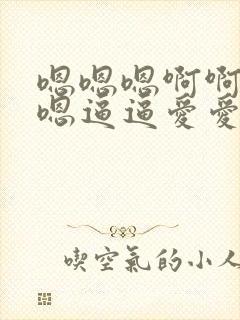 嗯嗯嗯啊啊
嗯逼逼爱爱
喫空氣的小人